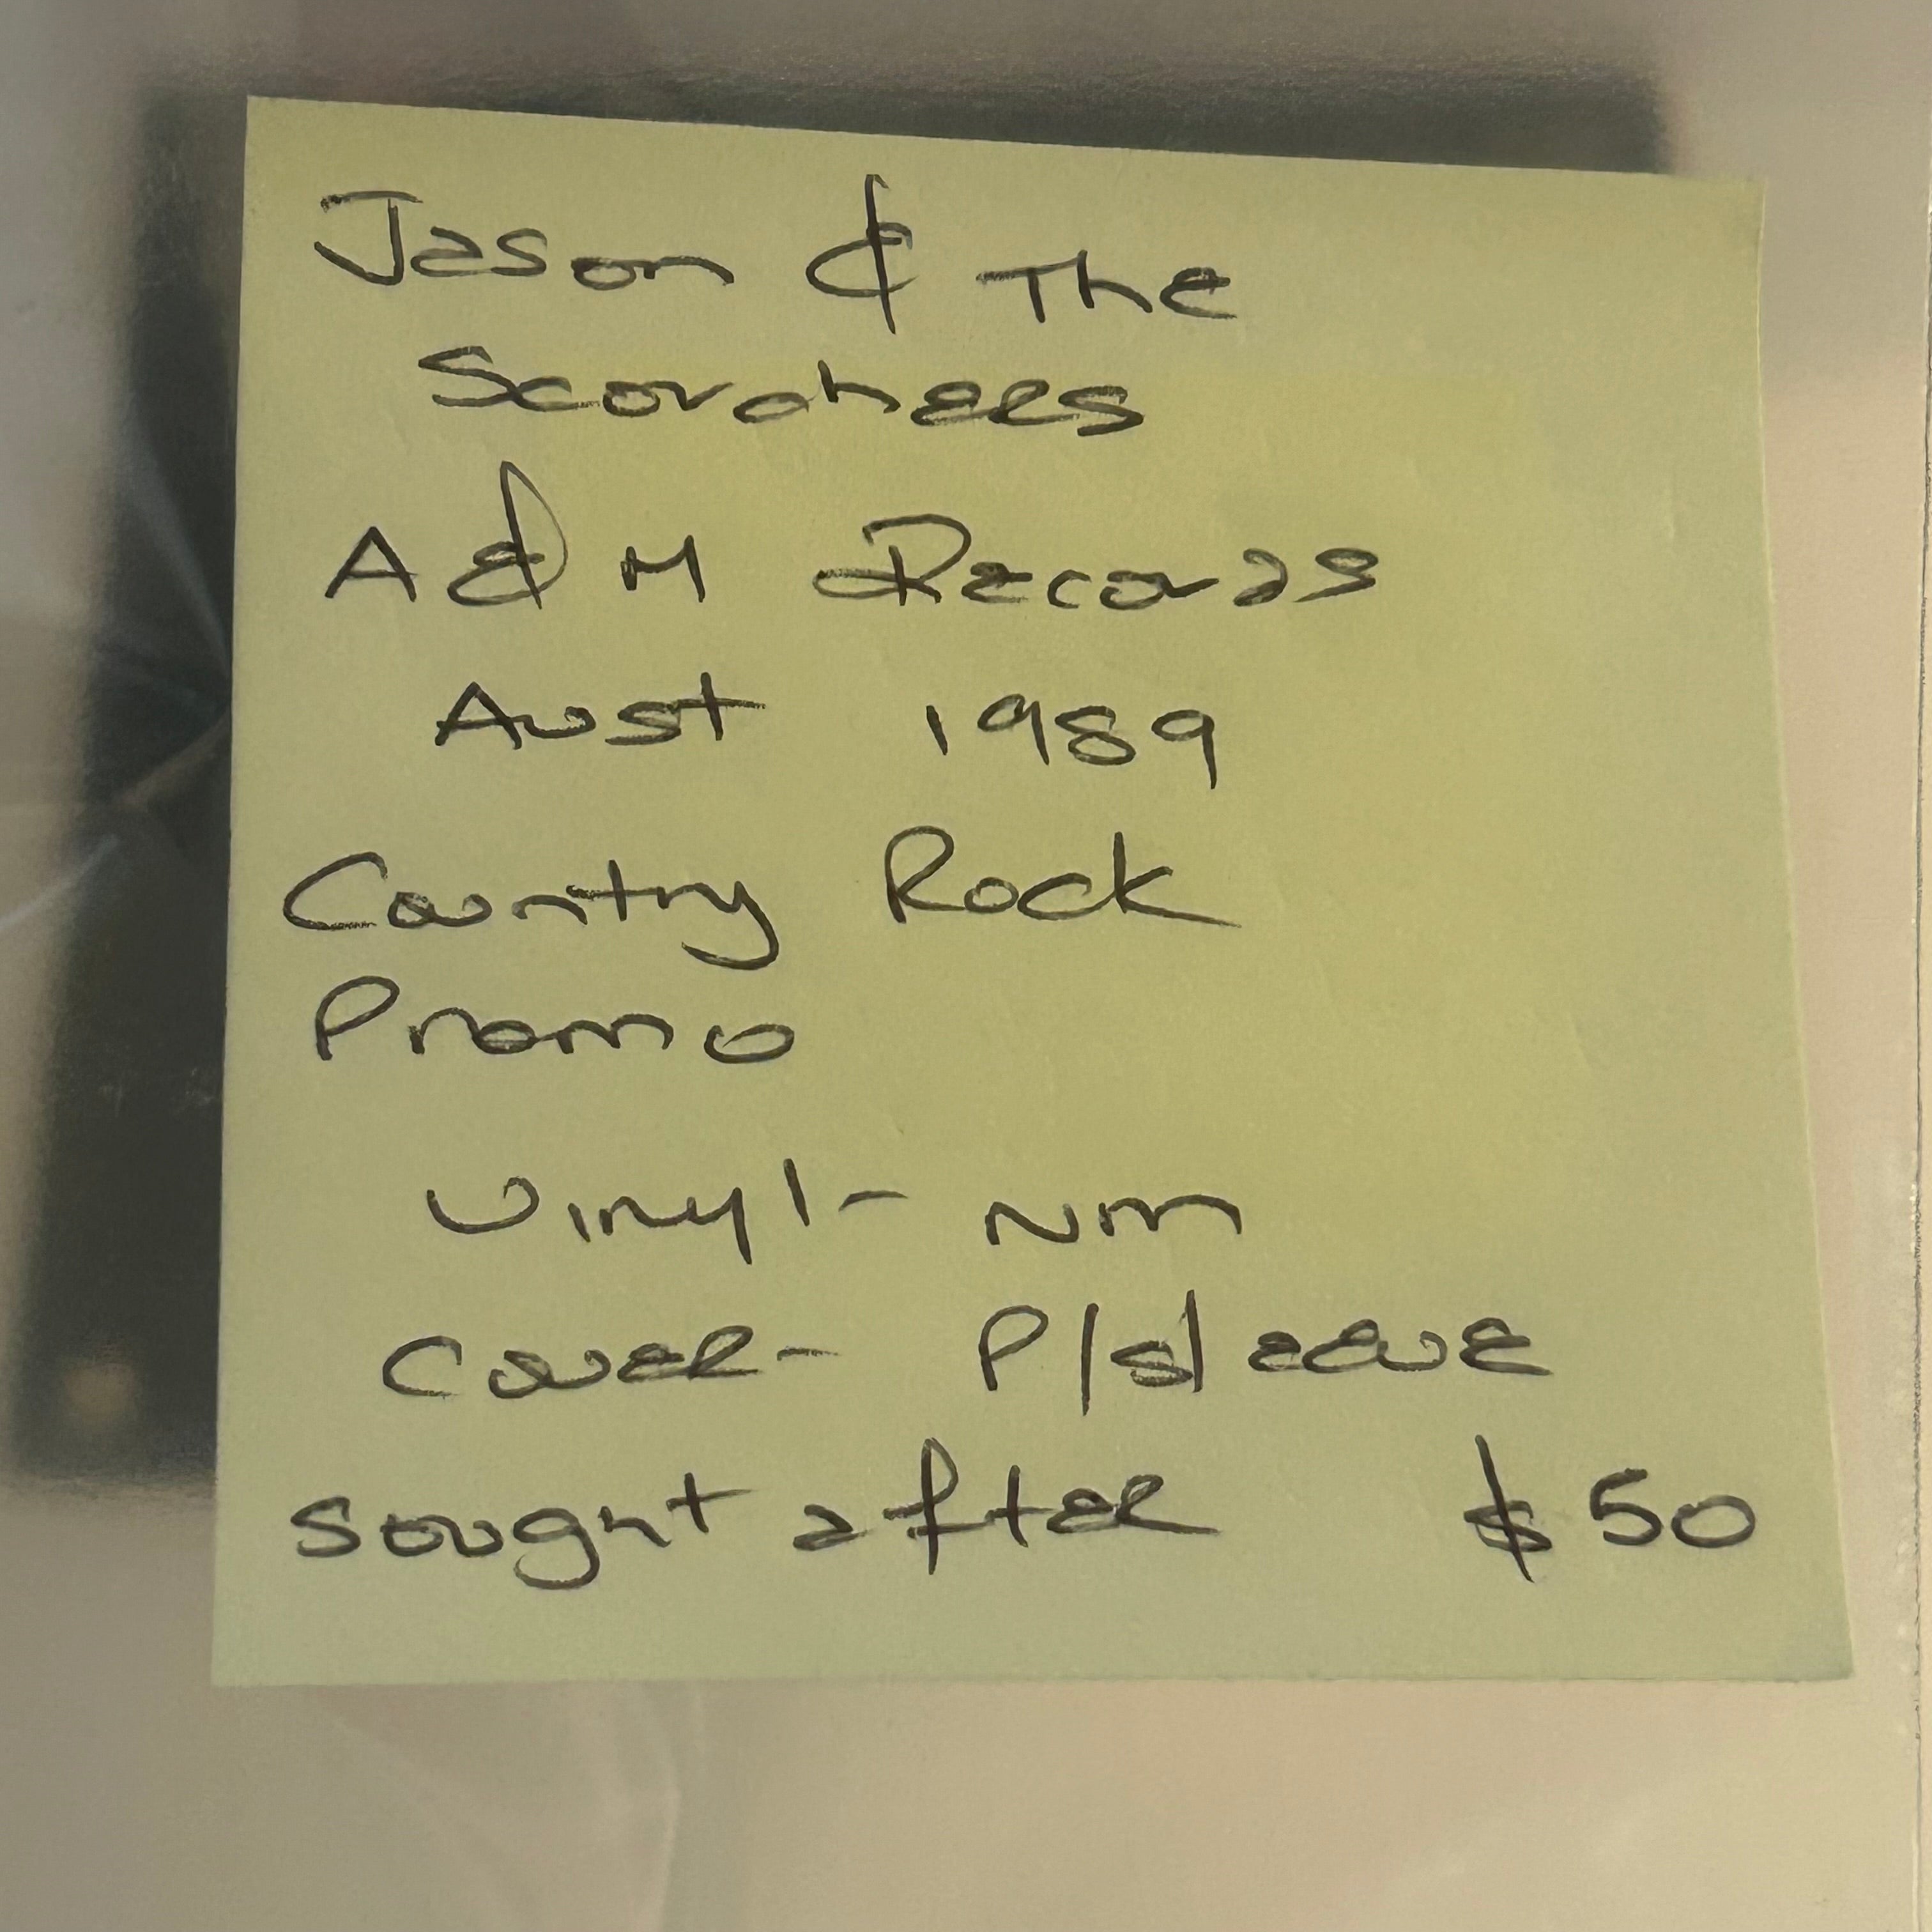 Jason & The
Scorchers
A & M Records
Aust 1989
Country Rock
Promo
Vinyl - NM
Cover - P/sleeve
Sought after $50